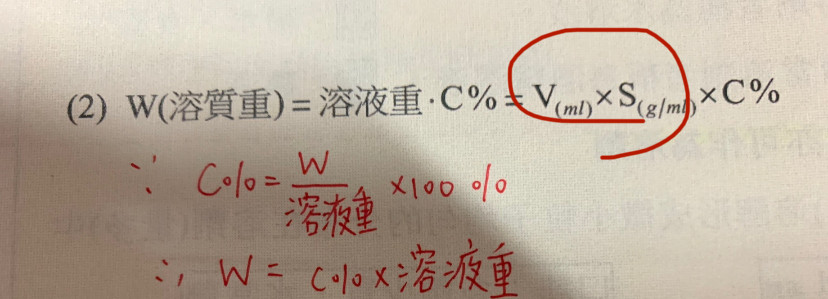 (2) W(溶質重)=溶液重·C%=V(ml)×S(g/ml)×C%
∵ C%=W/溶液重 ×100%
∴ W= C%×溶液重